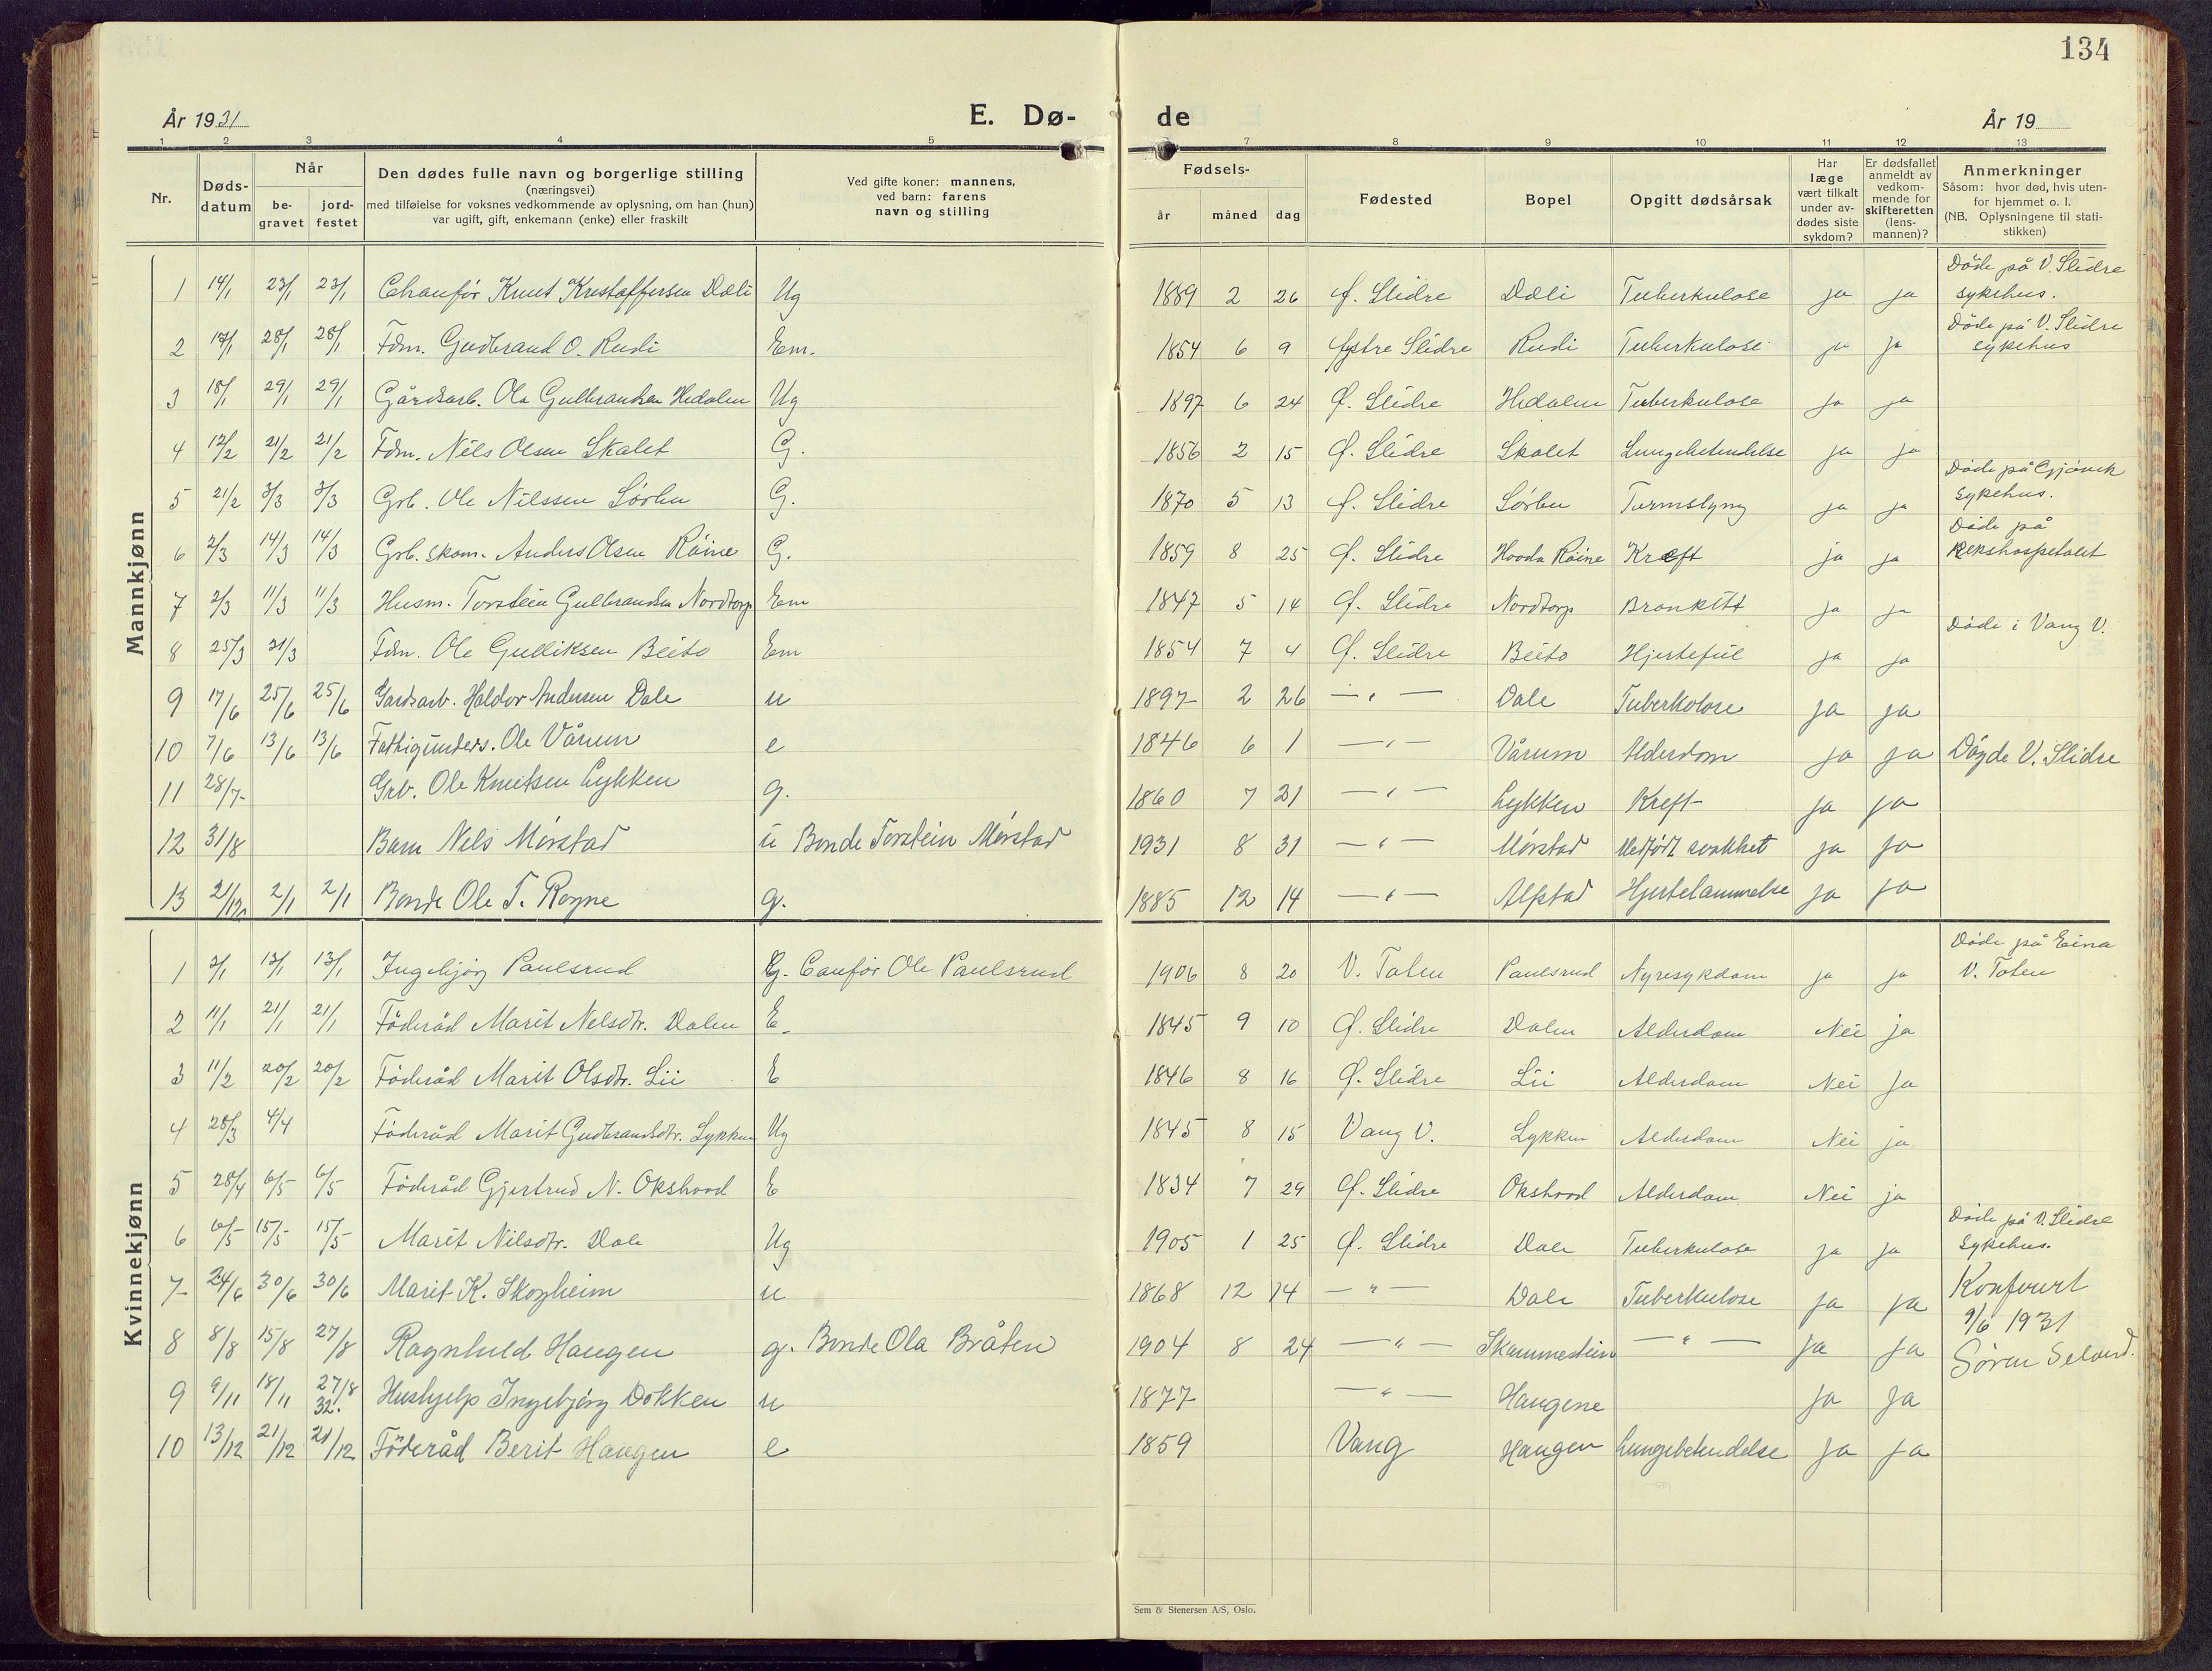 134
År 1931
E. Dø-
de
År 19
1 2 3 4 5
7 8 9 10 11 12 13
Nr.
Døds-
datum
Når
be-
gravet
jord-
festet
Den dødes fulle navn og borgerlige stilling
(næringsvei)
med tilføielse for voksnes vedkommende av oplysning, om han (hun)
var ugift, gift, enkemann (enke) eller fraskilt
Ved gifte koner: mannens,
ved barn: farens
navn og stilling
Fødsels-
år måned dag
Fødested
Bopel
Opgitt dødsårsak
Har
læge
vært tilkalt
under av-
dødes siste
sykdom?
Er dødsfallet
anmeldt av
vedkom-
mende for
skifteretten
(lens-
mannen)?
Anmerkninger
Såsom: hvor død, hvis uten-
for hjemmet o. l.
(NB. Oplysningene til stati-
stikken)
Mannkjønn
1 14/1 23/1 23/1 Chauför Knut Kristoffersen Döli Ug 1889 2 26 Ø. Slidre Döli Tuberkulose ja ja Döde på V. Slidre sykehus.
2 17/1 28/1 28/1 Fdm. Gudbrand O. Rudi Em. 1854 6 9 Østre Slidre Rudi Tuberkulose ja ja Döde på V. Slidre sykehus
3 18/1 29/1 29/1 Gårdsarb. Ola Gulbrandsen Hedalen Ug 1897 6 24 Ø. Slidre Hedalen Tuberkulose ja ja
4 12/2 21/2 21/2 Fdm. Nils Olsen Skalet G. 1856 2 15 Ø. Slidre Skalet Lungebetendelse ja ja
5 21/2 3/3 3/3 Grb. Ole Nilssen Sörbu G. 1870 5 13 Ø. Slidre Sörbu Tarmslyng ja ja Döde på Gjövik sykehus.
6 2/3 14/3 14/3 Grb. skom. Anders Olsen Röine G. 1859 8 25 Ø. Slidre Hovda Röine Kræft ja ja Döde på Rikshospitalet
7 2/3 11/3 11/3 Husm. Torstein Gulbrandsen Nordtorp Em 1847 5 14 Ø. Slidre Nordtorp Bronkitt ja ja
8 25/3 31/3 Fdm. Ole Gulliksen Beito Em 1854 7 4 Ø. Slidre Beito Hjertefeil ja ja Döde i Vang V.
9 17/6 25/6 25/6 Gardsarb. Haldor Andersen Dale u 1897 2 26 — " — Dale Tuberkolose ja ja
10 7/6 13/6 13/6 Fattigunders. Ole Vårum e 1846 6 1 — " — Vårum Alderdom ja ja Døyde V. Slidre
11 28/7 Grb. Ole Knutsen Lykken g. 1860 7 31 — " — Lykken Kreft ja ja
12 31/8 Barn Nels Mörstad u Bonde Torstein Mörstad 1931 8 31 — " — Mörstad Medfødt svakhet ja ja
13 21/12 2/1 2/1 Bonde Ole T. Rogne g. 1885 12 14 — " — Alfstad Hjertelammelse ja ja
Kvinnekjønn
1 3/1 13/1 13/1 Ingebjørg Paulsrud G. Cauför Ole Paulsrud 1906 8 20 V. Toten Paulsrud Nyresykdom ja ja Döde på Eina V. Toten
2 11/1 21/1 21/1 Föderåd Marit Nelsdtr. Dalen E. 1845 9 10 Ø. Slidre Dalen Alderdom Nei ja
3 11/2 20/2 20/2 Föderåd Marit Olsdtr. Lii E 1846 8 16 Ø. Slidre Lii Alderdom Nei ja
4 28/3 4/4 Föderåd Marit Gudbrandsdtr. Lykken Ug 1845 8 15 Vang V. Lykken Alderdom Nei ja
5 28/4 6/5 6/5 Föderåd Gjertrud N. Okshovd E 1834 7 29 Ø. Slidre Okshovd Alderdom Nei ja
6 6/5 15/5 15/5 Marit Nilsdtr. Dale Ug 1905 1 25 Ø. Slidre Dale Tuberkulose ja ja Döde på V. Slidre sykehus.
7 24/6 30/6 30/6 Marit K. Skogheim u 1868 12 14 — " — Dale Tuberkulose ja ja Konferert
8 8/8 15/8 27/8 Ragnhild Haugen g. Bonde Ola Bråten 1904 8 24 — " — Skammestein — " — ja ja 9/6 1931
Sören Seland.
9 9/11 18/11 27/8 32. Hushjelp Ingebjørg Dokken u 1877 — " — Haugene ja ja
10 13/12 21/12 21/12 Föderåd Berit Haugen e 1859 Vang Haugen Lungebetendelse ja ja
Sem & Stenersen A/S, Oslo.